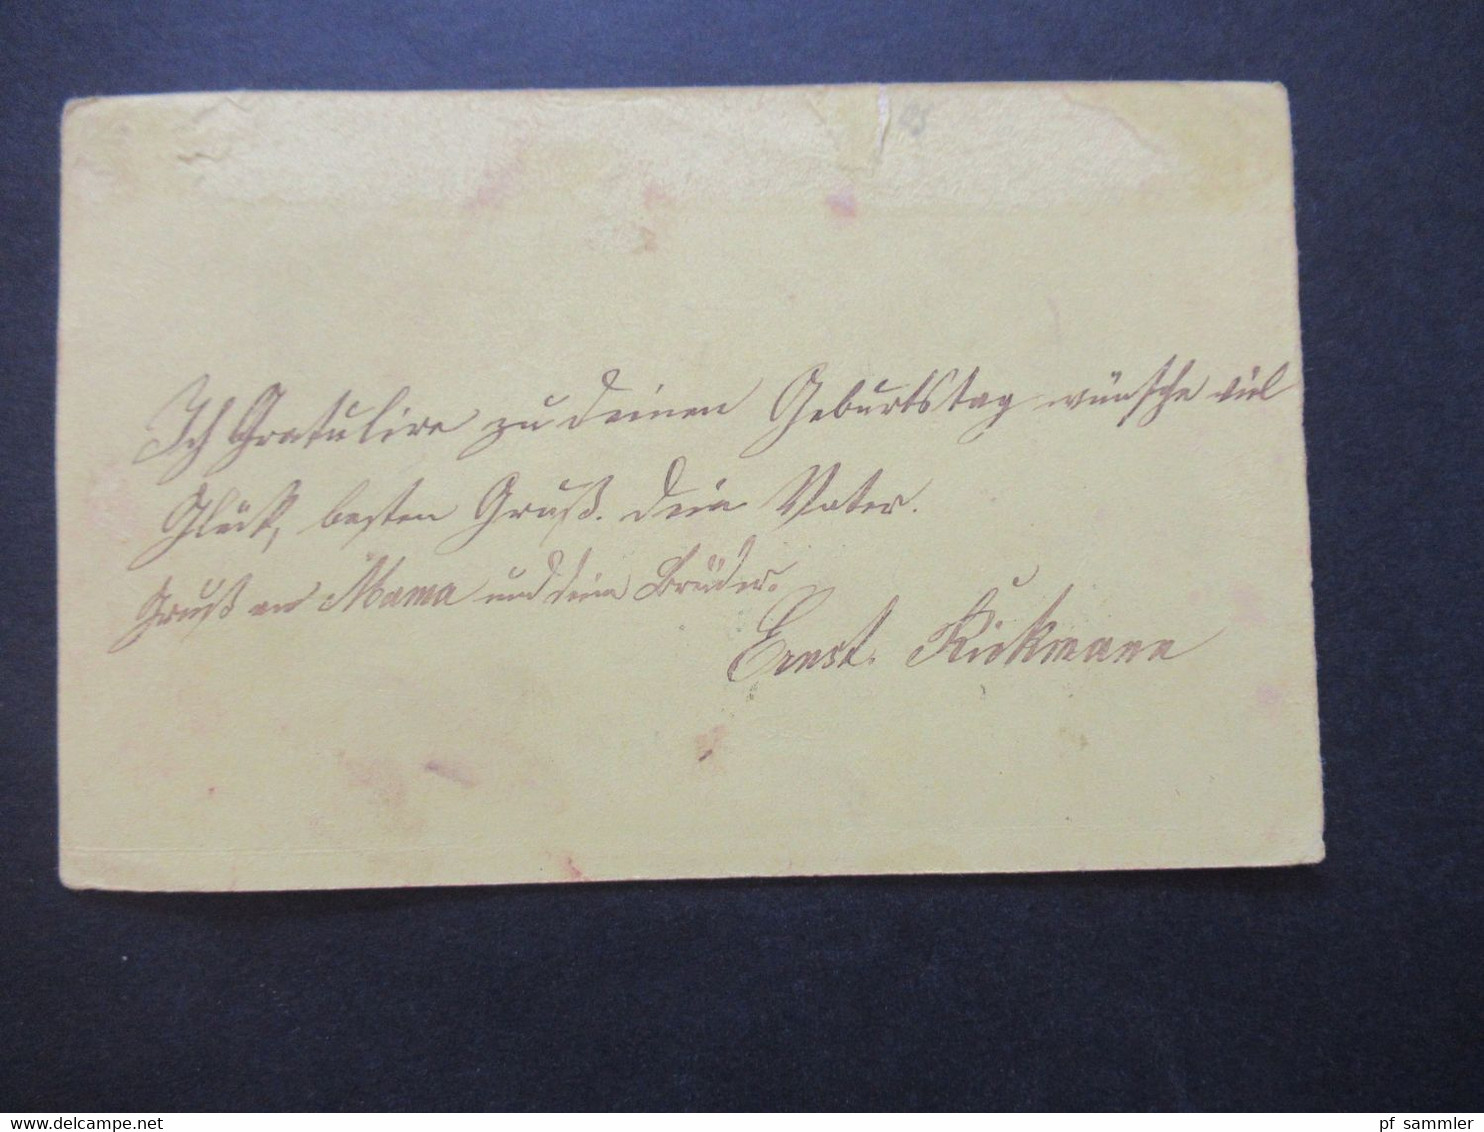 Ich Gratulire zu deinen Geburtstag wünsche viel
Glück, besten Gruß. dein Vater.
Gruß an Mama und dein Brüder.
Ernst. Rickmann
www.delcampe.net
pf_sammler